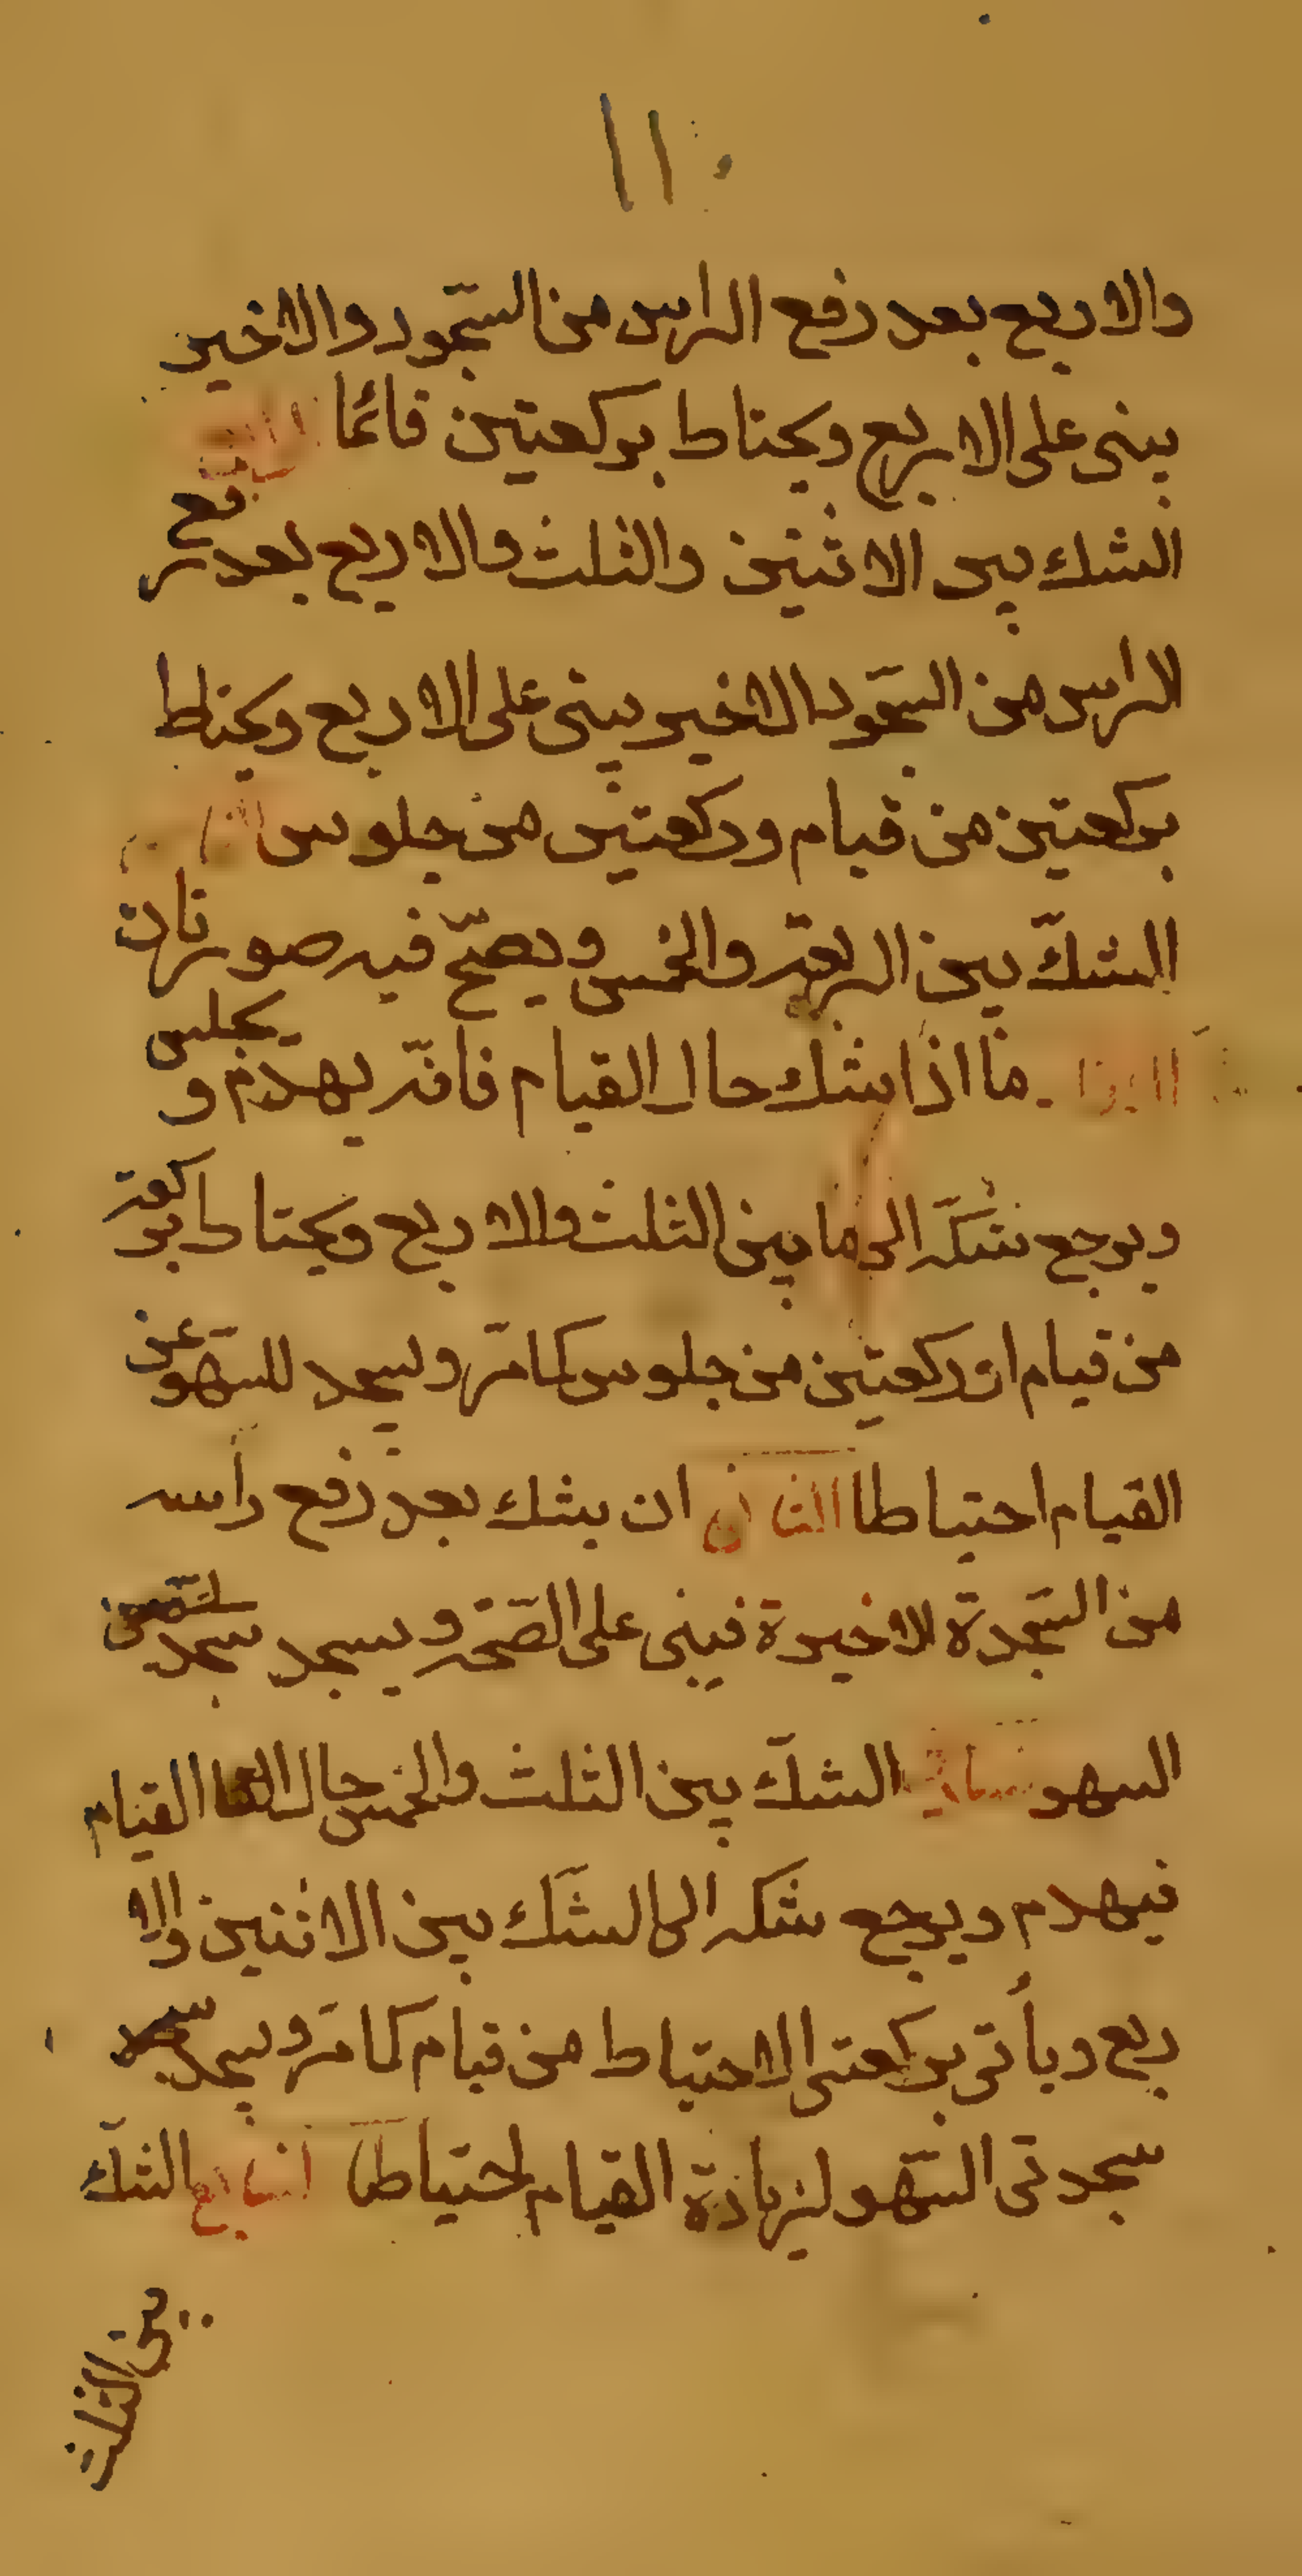 ١١٠
والاربع بعد رفع الراس من السّجود والاخير
يبنى على الاربع ويحتاط بركعتين قائمًا
الشك بين الاثنين والثلث والاربع بعد رفع
الراس من السّجود الاخير يبنى على الاربع ويحتاط
بركعتين من قيام وركعتين من جلوس
الشكّ بين الاربعة والخمس ويصحّ فيه صورتان
ما اذا شك حال القيام فانّه يهدم و يجلس
ويرجع شكّه الى ما بين الثلث والاربع ويحتاط بركعة
من قيام او ركعتين من جلوس كما مرّ ويسجد للسّهو عن
القيام احتياطا الثانى ان يشك بعد رفع رأسه
من السّجدة لاخيرة فيبنى على الصّحة ويسجد
السهو الشكّ بين الثلث والخمس حال القيام
فيهدم ويرجع شكه الى الشّك بين الاثنين والا
ربع ويأتى بركعتى الاحتياط من قيام كما مرّ ويسجد
سجدتى السّهو لزيادة القيام احتياطا السابع الشكّ
بين الثلث